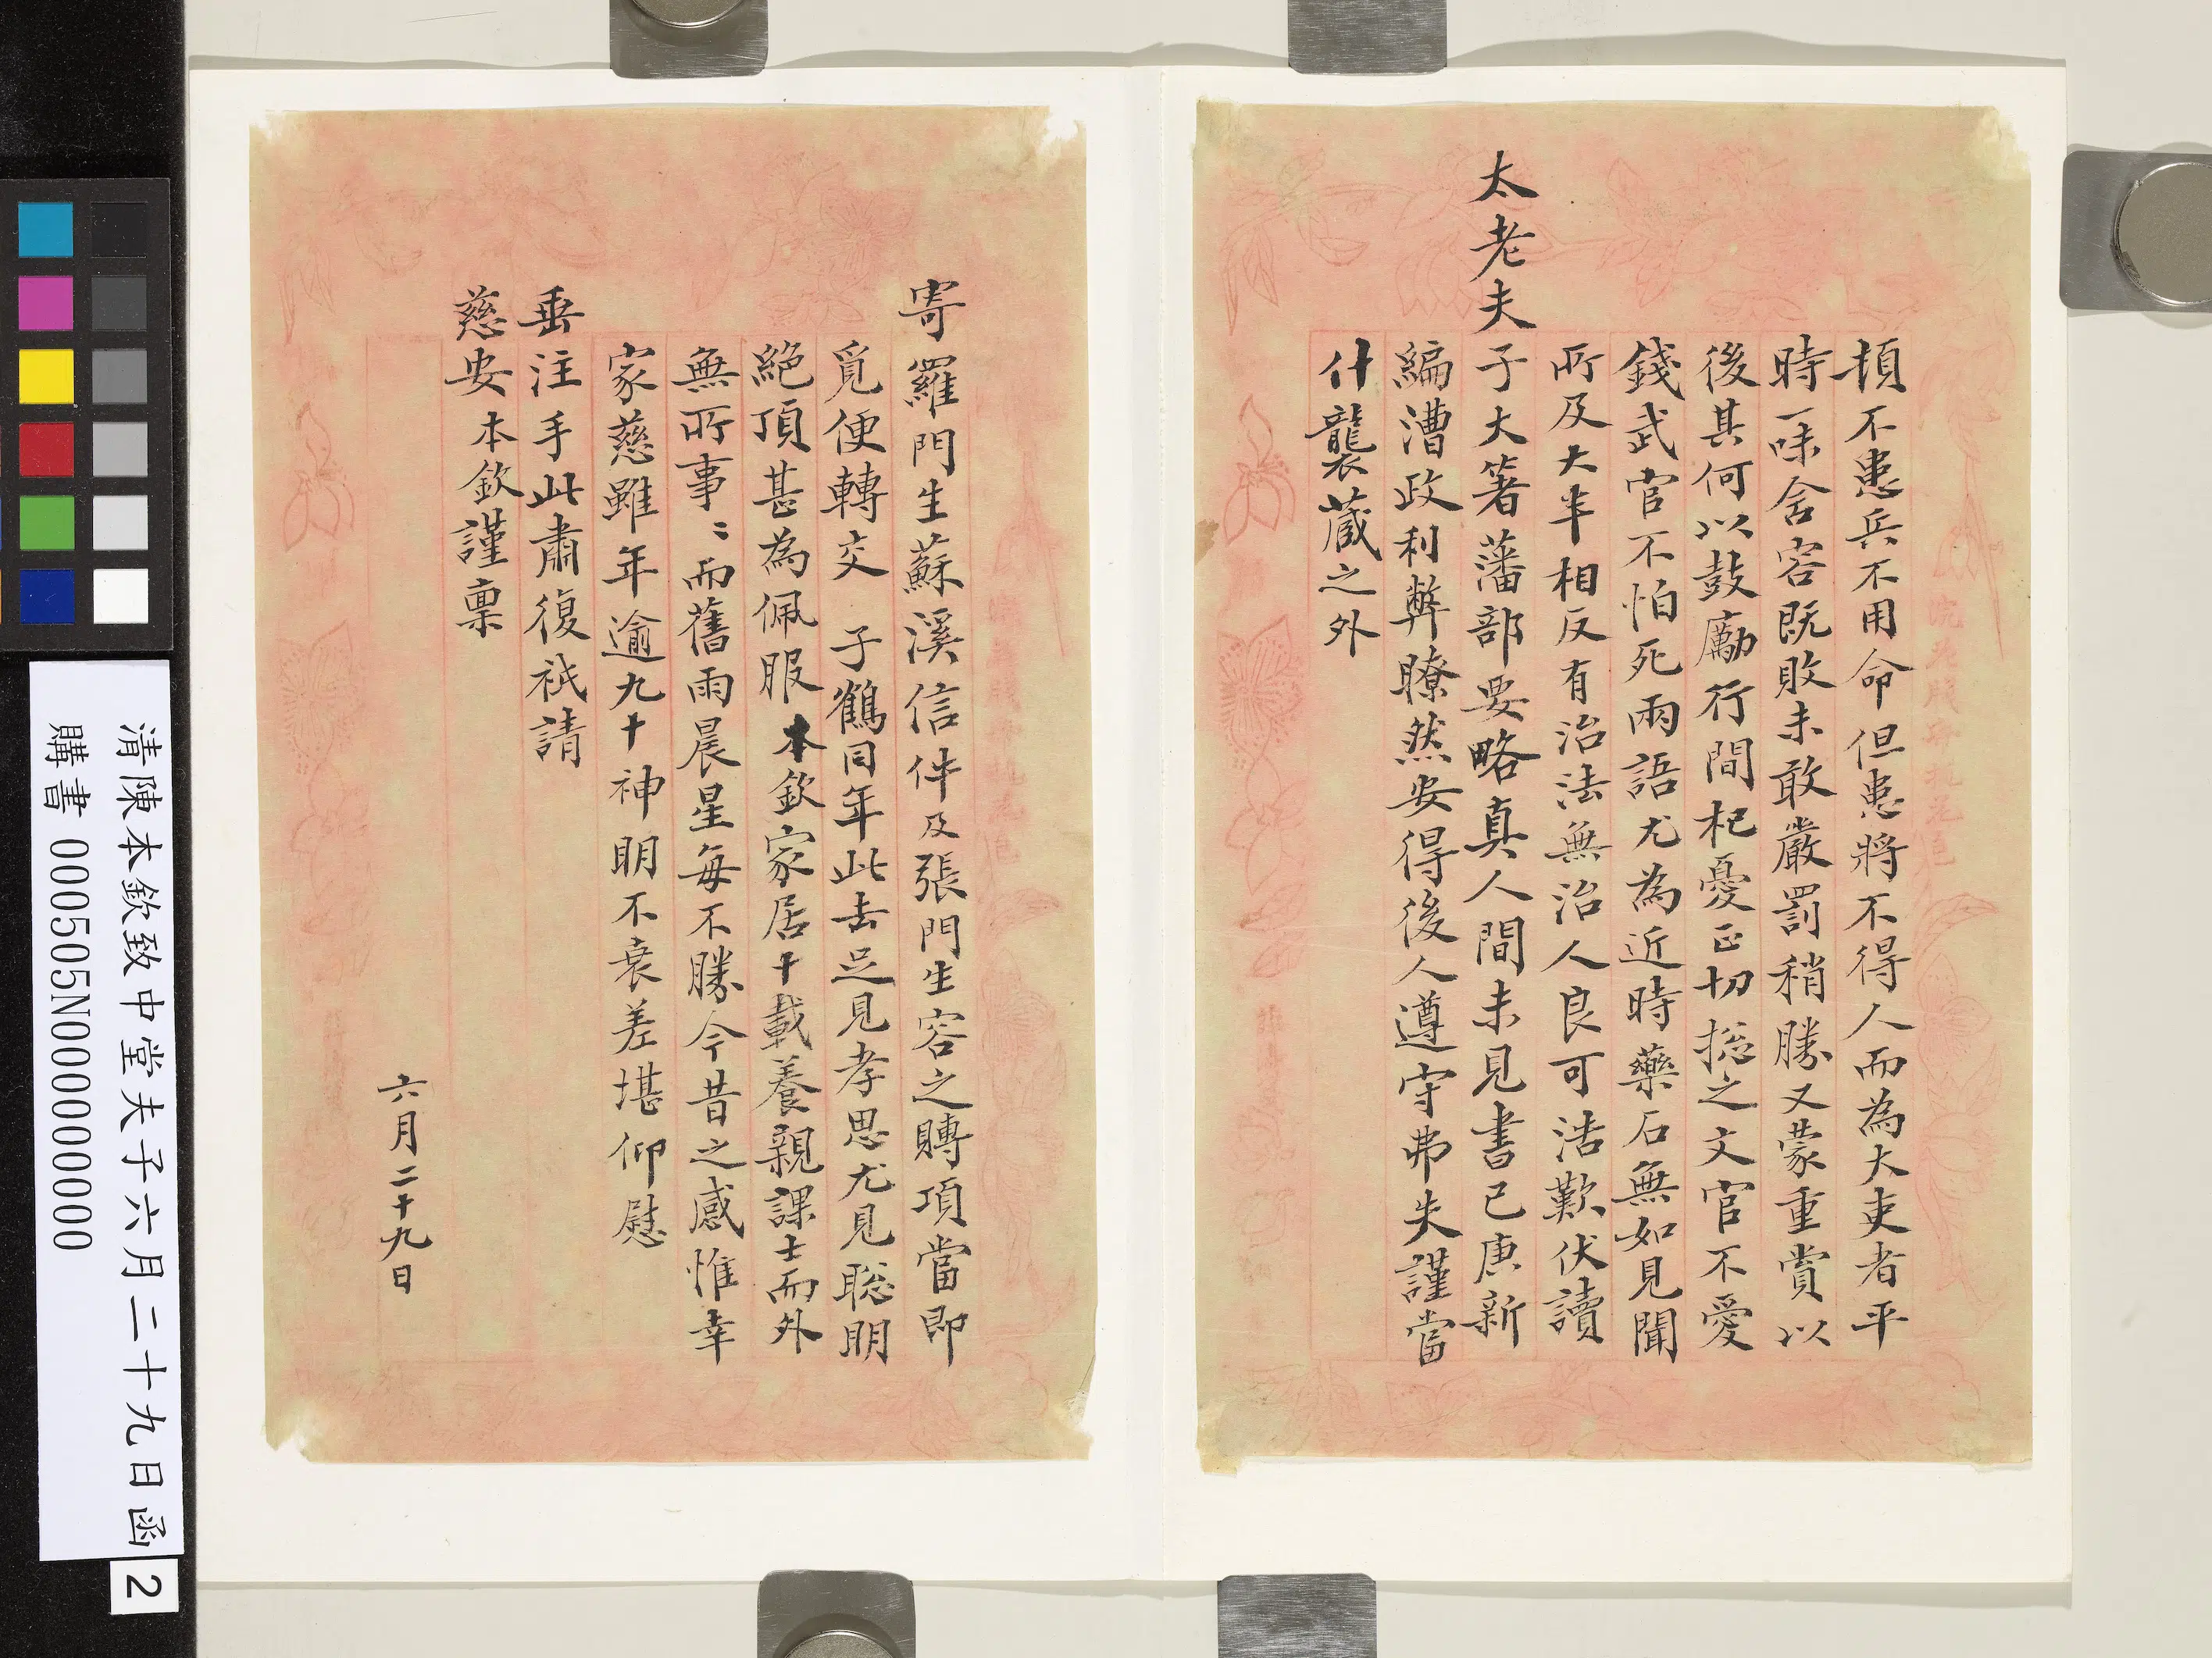 損不患兵不用命但患將不得人而為大吏者平
時一味含容既敗未敢嚴罰稍勝又蒙重賞以
後其何以鼓勵行間杞憂正切捴之文官不愛
錢武官不怕死兩語尤為近時藥石無如見聞
所及大半相反有治法無治人良可浩歎伏讀
太老夫子大著藩部要略真人間未見書己庚新
編漕政利弊瞭然安得後人遵守弗失謹當
什襲藏之外
寄羅門生蘇溪信件及張門生容之賻項當即
覓便轉交 子鶴同年此去足見孝思尤見聡明
絕頂甚為佩服本欽家居十載養親課士而外
無所事〻而舊雨晨星每不勝今昔之感惟幸
家慈雖年逾九十神明不衰差堪仰慰
垂注手此肅復祇請
慈安本欽謹稟
六月二十九日
清陳本欽致中堂夫子六月二十九日函
購書 000505N000000000
2